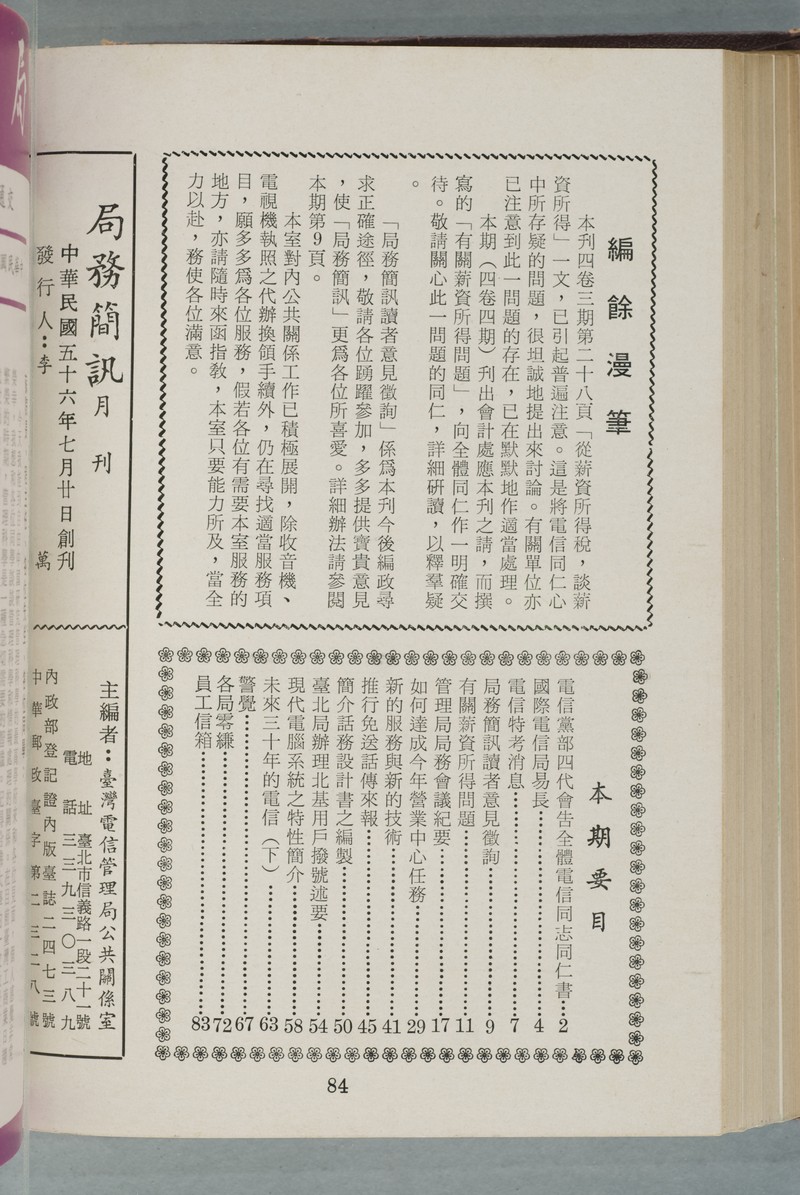 編餘漫筆
本刊四卷三期第二十八頁「從薪資所得稅，談薪
資所得」一文，已引起普遍注意。這是將電信同仁心
中所存疑的問題，很坦誠地提出來討論。有關單位亦
已注意到此一問題的存在，已在默默地作適當處理。
本期（四卷四期）刋出會計處應本刋之請，而撰
寫的「有關薪資所得問題」，向全體同仁作一明確交
待。敬請關心此一問題的同仁，詳細研讀，以釋羣疑
。
「局務簡訊讀者意見徵詢」係爲本刋今後編政尋
求正確途徑，敬請各位踴躍參加，多多提供寶貴意見
，使「局務簡訊」更爲各位所喜愛。詳細辦法請參閱
本期第9頁。
本室對內公共關係工作已積極展開，除收音機、
電視機執照之代辦換領手續外，仍在尋找適當服務項
目，願多多爲各位服務，假若各位有需要本室服務的
地方，亦請隨時來函指敎，本室只要能力所及，當全
力以赴，務使各位滿意。
本期要目
電信黨部四代會告全體電信同志同仁書…2
國際電信局易長…4
電信特考消息…7
局務簡訊讀者意見徵詢…9
有關薪資所得問題…11
管理局局務會議紀要…17
如何達成今年營業中心任務…29
新的服務與新的技術…41
推行免送話傳來報…45
簡介話務設計書之編製…50
臺北局辦理北基用戶撥號述要…54
現代電腦系統之特性簡介…58
未來三十年的電信（下）…63
警覺…67
各局零縑…72
員工信箱…83
局務簡訊月刊
中華民國五十六年七月廿日創刋
發行人：李萬
主編者：臺灣電信管理局公共關係室
地址 臺北市信義路一段二十一號
電話 三三九三〇三八九
內政部登記證內版臺誌二四七三號
中華郵政臺字第二三二八號
84